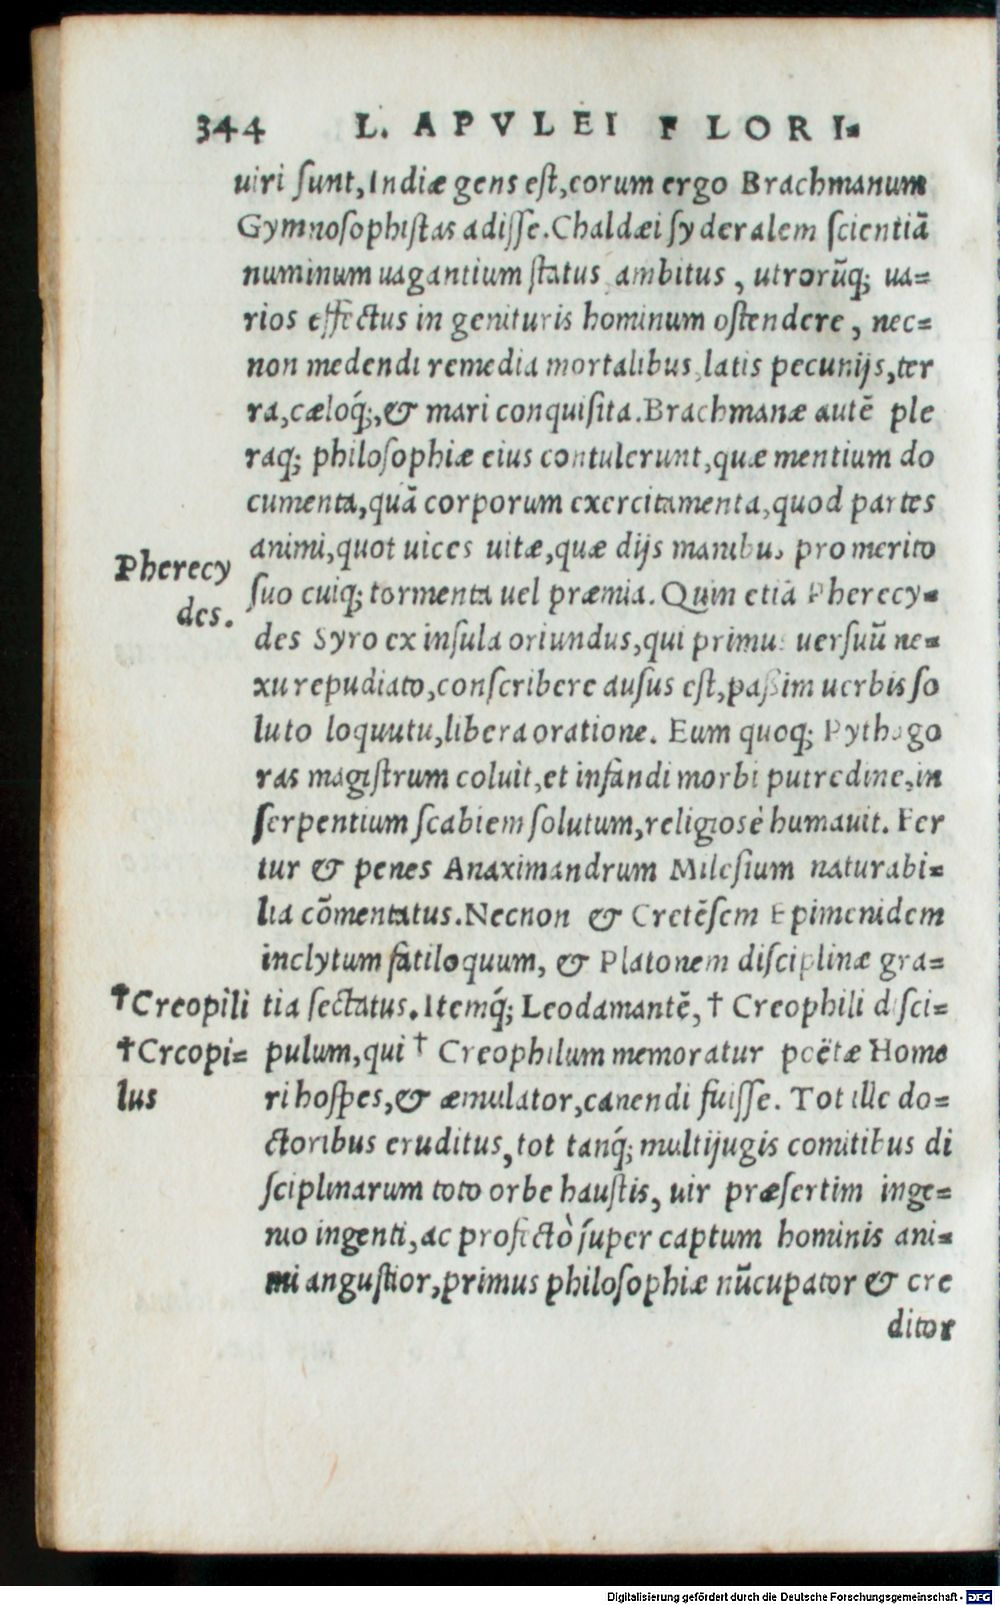 344 L. APVLEI FLORI.
uiri ſunt, Indiæ gens eſt, eorum ergo Brachmanum
Gymnoſophiſtas adiſſe. Chaldæi ſyderalem ſcientiā
numinum uagantium ſtatus ambitus, utrorūq; ua=
rios effectus in genituris hominum oſtendere, nec=
non medendi remedia mortalibus, latis pecunijs, ter
ra, cæloq́;, & mari conquiſita. Brachmanæ autē ple
raq; philoſophiæ eius contulerunt, quæ mentium do
cumenta, quā corporum exercitamenta, quod partes
animi, quot uices uitæ, quæ dijs manibus pro merito
Pherecy
des.
ſuo cuiq; tormenta uel præmia. Quin etiā Pherecy=
des Syro ex inſula oriundus, qui primus uerſuū ne=
xu repudiato, conſcribere auſus eſt, paßim uerbis ſo
luto loquutu, libera oratione. Eum quoq; Pythago
ras magiſtrum coluit, et infandi morbi putredine, in
ſerpentium ſcabiem ſolutum, religiosè humauit. Fer
tur & penes Anaximandrum Mileſium naturabi=
lia cōmentatus. Necnon & Cretēſem Epimenidem
inclytum fatiloquum, & Platonem diſciplinæ gra=
†Creopili
tia ſectatus. Itemq́; Leodamantē, † Creophili diſci=
†Creopi=
lus
pulum, qui † Creophilum memoratur poëtæ Home
ri hoſpes, & æmulator, canendi fuiſſe. Tot ille do=
ctoribus eruditus, tot tanq́; multijugis comitibus di
ſciplinarum toto orbe hauſtis, uir præſertim inge=
nio ingenti, ac profectò ſuper captum hominis ani=
mi anguſtior, primus philoſophiæ nūcupator & cre
ditor
Digitalisierung gefördert durch die Deutsche Forschungsgemeinschaft - DFG